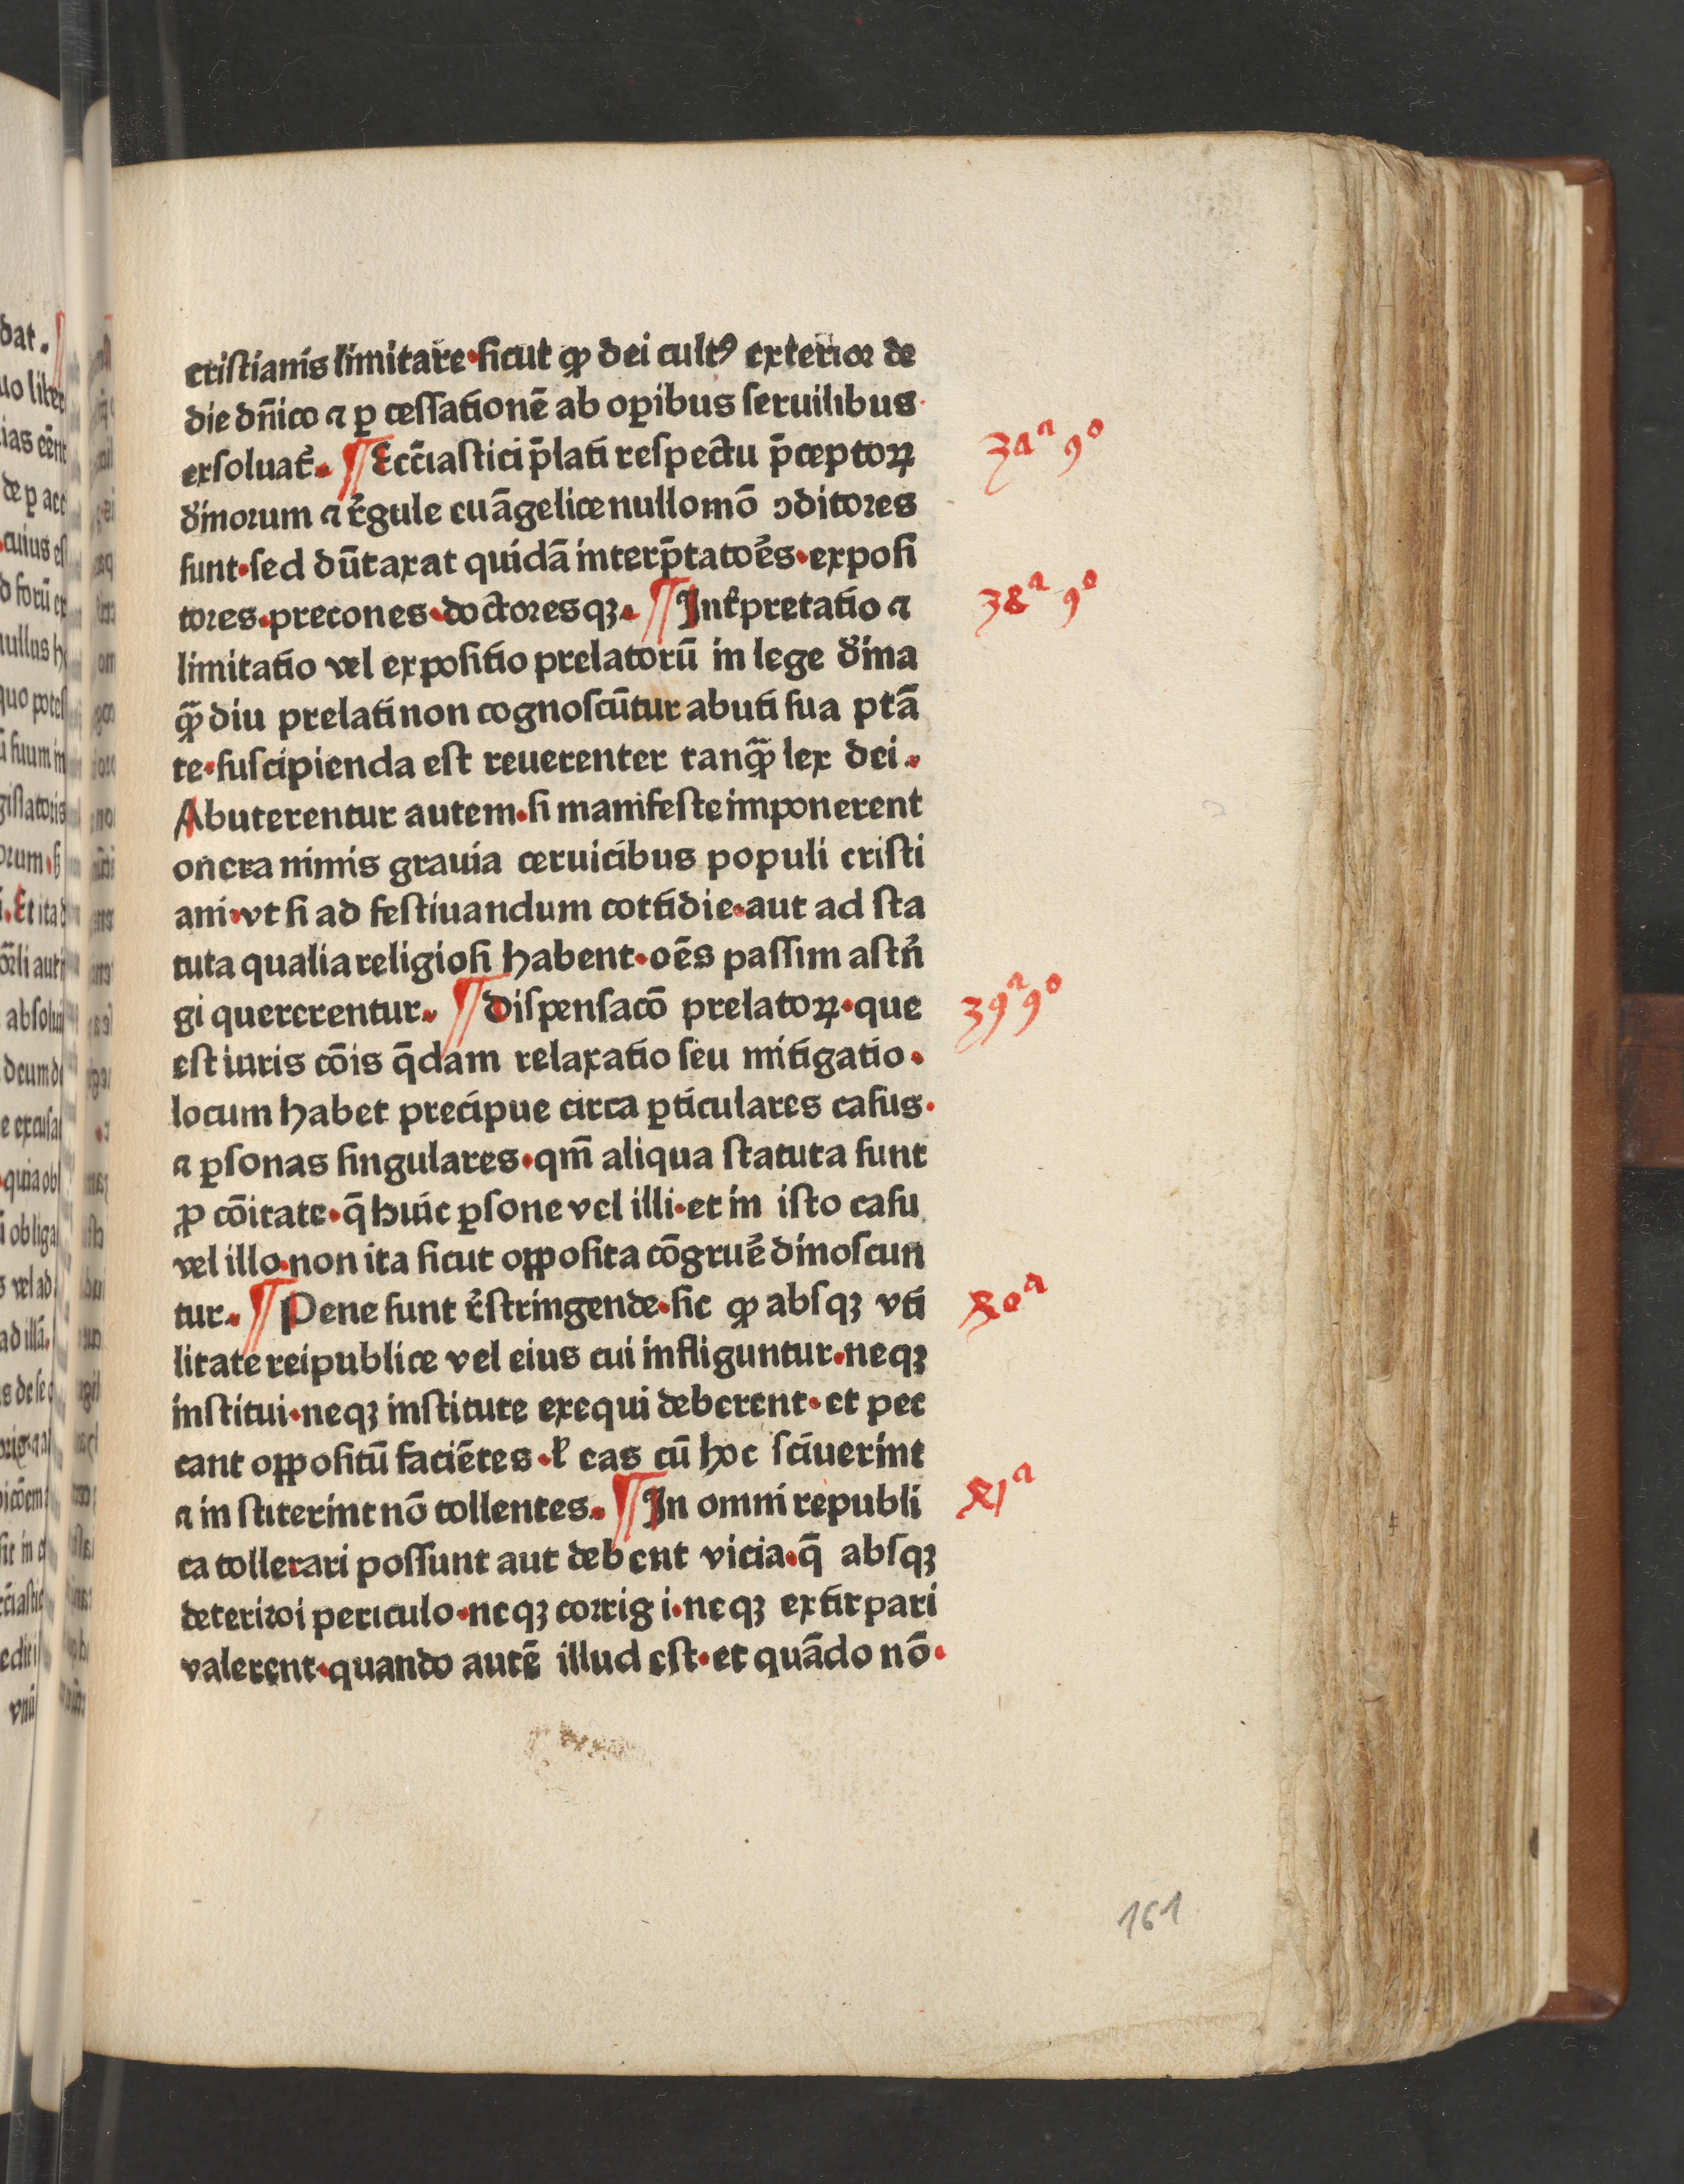 cristianis limitare·sicut ꝙ dei cultꝰ exterior de
die dn̄ico ⁊ ꝑ cessationē ab oꝑibus seruilibus·
exsoluat᷑. ¶ Ecc̄iastici p̄lati respectu p̄ceptoꝝ
diuinorum ⁊ regule euāgelice nullomō ↄditores
sunt·sed dūtaxat quidā interp̄tatoēs·exposi
tores·precones·doctoresqꝫ. ¶ Int̉pretatio ⁊
limitatio vel expositio prelatorū in lege dina
qꝫ̄ diu prelati non cognoscūtur abuti sua ptā
te·suscipienda est reuerenter tanqꝫ̄ lex dei.
Abuterentur autem·si manifeste imponerent
onera nimis grauia ceruicibus populi cristi
ani·vt si ad festiuandum cottidie·aut ad sta
tuta qualia religiosi habent·oēs passim astn̉
gi quererentur. ¶ Dispensacō prelatoꝝ·que
est iuris cōis q̄dam relaxatio seu mitigatio.
locum habet precipue circa ꝑticulares casus·
⁊ ꝑsonas singulares·qm̄ aliqua statuta sunt
ꝓ cōitate·q̄ huic ꝑsone vel illi·et in isto casu
vel illo·non ita sicut oꝓosita cōgruē dinoscun
tur. ¶ Pene sunt r̉stringende·sic ꝙ absqꝫ vti
litate reipublice vel eius cui infliguntur·neqꝫ
institui·neqꝫ institute exequi deberent·et pec
cant oꝓositū faciētes·ꝉ eas cū hoc sciuerint
⁊ in stiterint nō tollentes. ¶ In omni republi
ca tollerari possunt aut debent vicia·q̄ absqꝫ
deteriroi periculo·neqꝫ corrigi·neqꝫ extirpari
valerent·quando autē illud est·et quādo nō·
37ᵃ 9°
38ᵃ 9°
39ᵃ 9°
40ᵃ
41ᵃ
161